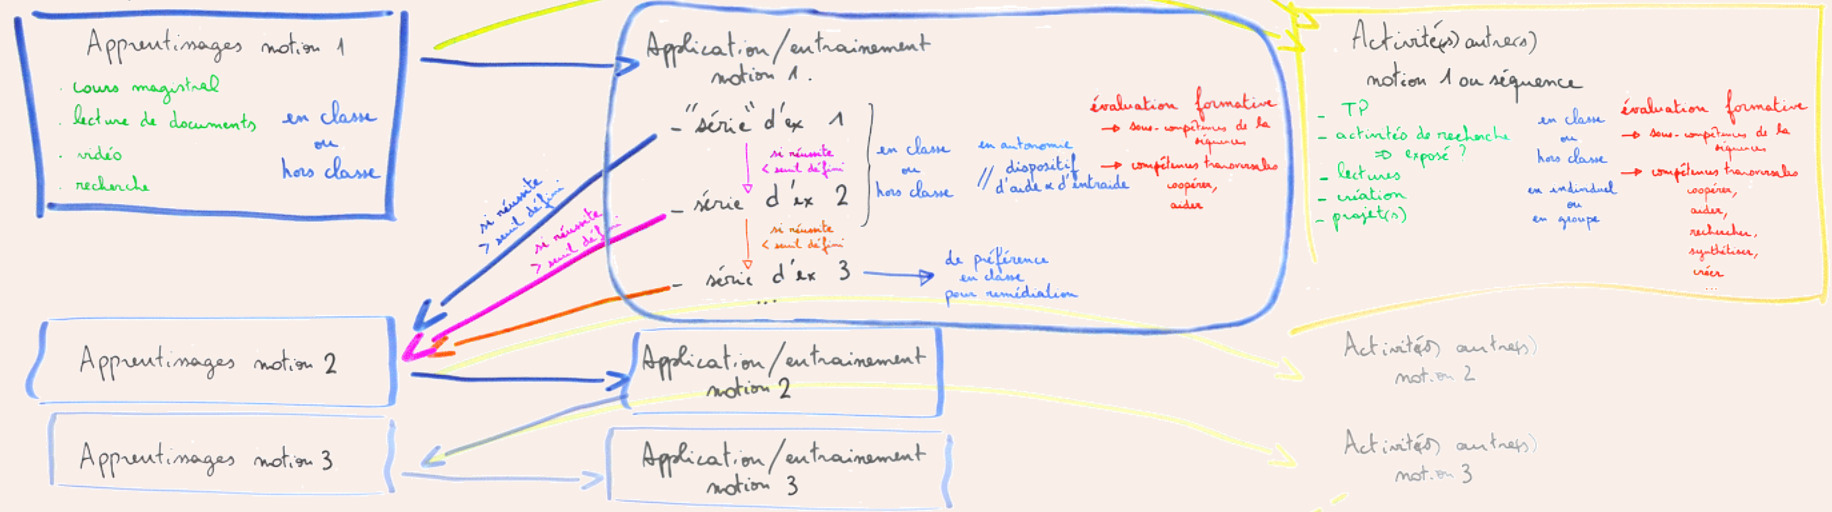 Apprentissages notion 1
. cours magistral
. lecture de documents
. vidéo
. recherche
en classe
ou
hors classe
Application/entrainement
notion 1.
- "série" d'ex 1
si réussite
< seuil défini
- série d'ex 2
si réussite
< seuil défini
- série d'ex 3
...
en classe
ou
hors classe
en autonomie
// dispositif
d'aide & d'entraide
évaluation formative
→ sous-compétences de la
séquences
→ compétences transversales
coopérer,
aider
de préférence
en classe
pour remédiation
si réussite
> seuil défini
si réussite
> seuil défini
Activité(s) autre(s)
notion 1 ou séquence
- TP
- activités de recherche
⇒ exposé ?
- lectures
- création
- projet(s)
en classe
ou
hors classe
en individuel
ou
en groupe
évaluation formative
→ sous-compétences de la
séquences
→ compétences transversales
coopérer,
aider,
rechercher,
synthétiser,
créer
...
Apprentissages notion 2
Application/entrainement
notion 2
Activité(s) autre(s)
notion 2
Apprentissages notion 3
Application/entrainement
notion 3
Activité(s) autre(s)
notion 3